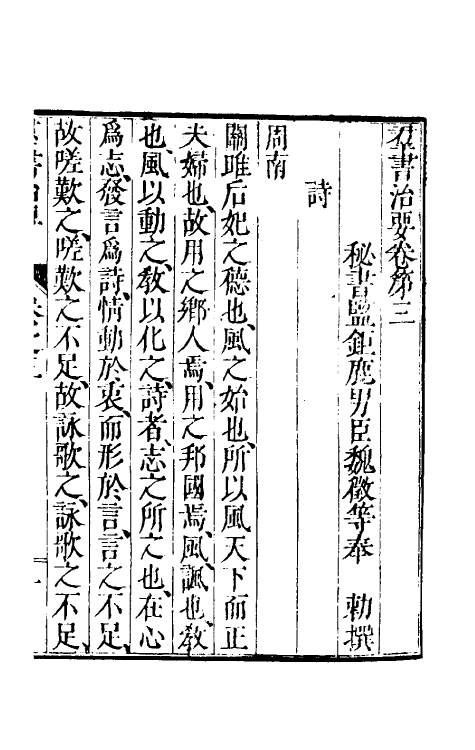 羣書治要卷第三
秘書監鉅鹿男臣魏徵等奉　勑撰
詩
周南
關雎后妃之德也、風之始也、所以風天下而正
夫婦也、故用之鄉人焉、用之邦國焉、風諷也、敎
也、風以動之、敎以化之、詩者、志之所之也、在心
爲志、發言爲詩、情動於衷、而形於言、言之不足、
故嗟歎之、嗟歎之不足、故詠歌之、詠歌之不足、